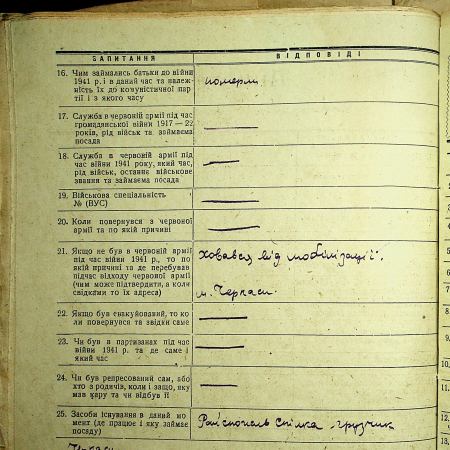 ЗАПИТАННЯ ВІДПОВІДІ
16. Чим займались батьки до війни
1941 р. і в даний час та належ-
ність їх до комуністичної пар-
тії і з якого часу
померли
17. Служба в червоній армії під час
громадянської війни 1917 — 22
років, рід військ та займаєма
посада
—
18. Служба в червоній армії під
час війни 1941 року, який час,
рід військ, останнє військове
звання та займаєма посада
—
19. Військова спеціяльність
№ (ВУС)
—
20. Коли повернувся з червоної
армії та по якій причині
—
21. Якщо не був в червоній армії
під час війни 1941 р., то по
якій причині та де перебував
під час відходу червоної армії
(чим може підтвердити, а коли
свідками то їх адреса)
Ховався від мобілізації.
м. Черкаси.
22. Якщо був евакуйований, то ко
ли повернувся та звідки саме
—
23. Чи був в партизанах під час
війни 1941 р. та де саме і
який час
—
24. Чи був репресований сам, або
хто з родичів, коли і защо, яку
мав кару та чи відбув її
—
25. Засоби існування в даний мо
мент (де працює і яку займає
посаду)
Райспожив спілка - грузчик
Черкаси